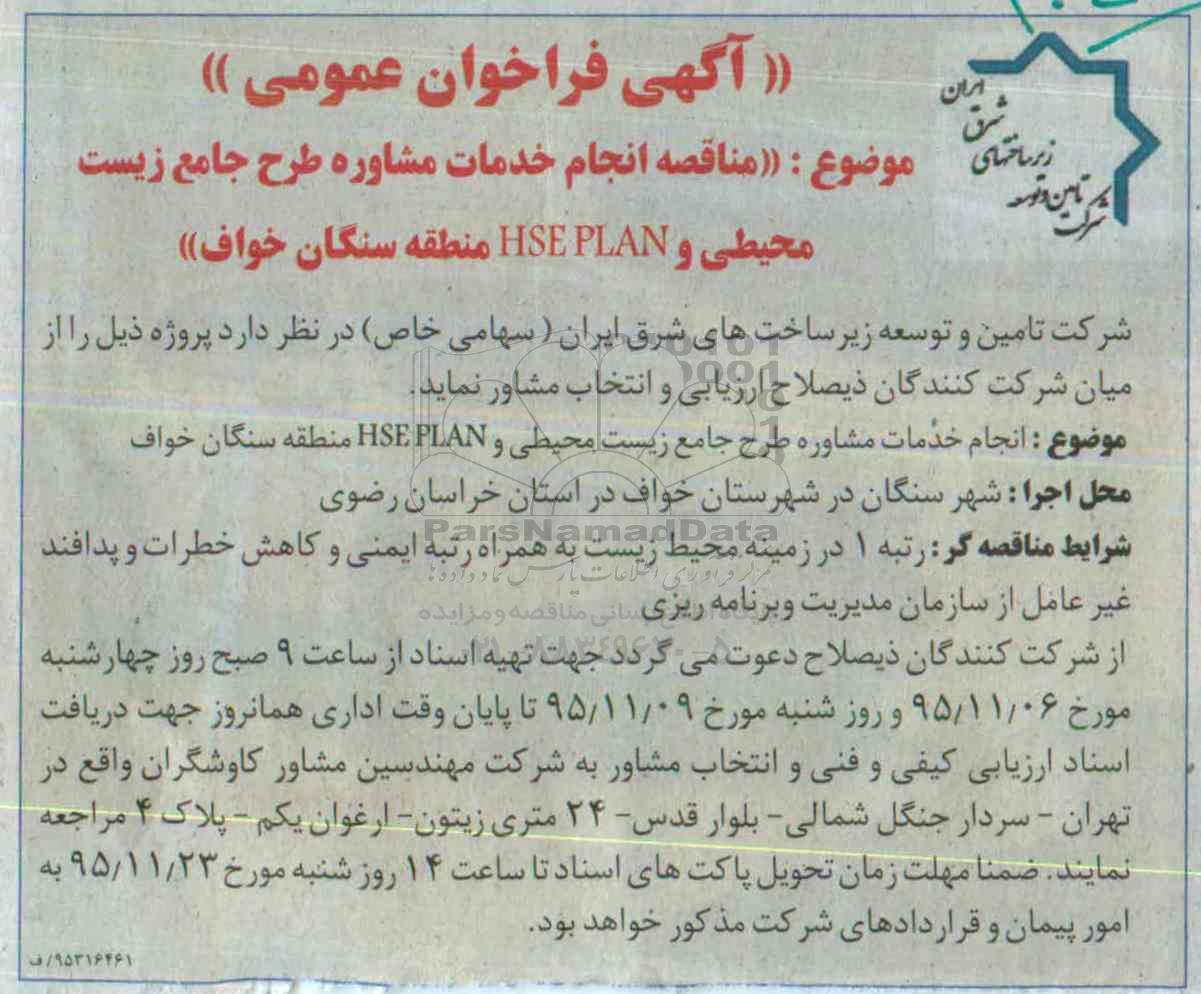 ایران
شرق
زیرساختهای
تامین و توسعه
شرکت
(( آگهی فراخوان عمومی ))
موضوع : ((مناقصه انجام خدمات مشاوره طرح جامع زیست
محیطی و HSE PLAN منطقه سنگان خواف))
شرکت تامین و توسعه زیرساخت های شرق ایران ( سهامی خاص) در نظر دارد پروژه ذیل را از
میان شرکت کنندگان ذیصلاح ارزیابی و انتخاب مشاور نماید.
موضوع : انجام خدمات مشاوره طرح جامع زیست محیطی و HSE PLAN منطقه سنگان خواف
محل اجرا : شهر سنگان در شهرستان خواف در استان خراسان رضوی
ParsNamadData
شرایط مناقصه گر : رتبه ۱ در زمینه محیط زیست به همراه رتبه ایمنی و کاهش خطرات و پدافند
غیر عامل از سازمان مدیریت وبرنامه ریزی
از شرکت کنندگان ذیصلاح دعوت می گردد جهت تهیه اسناد از ساعت ۹ صبح روز چهارشنبه
مورخ ۹۵/۱۱/۰۶ و روز شنبه مورخ ۹۵/۱۱/۰۹ تا پایان وقت اداری همانروز جهت دریافت
اسناد ارزیابی کیفی و فنی و انتخاب مشاور به شرکت مهندسین مشاور کاوشگران واقع در
تهران - سردار جنگل شمالی- بلوار قدس- ۲۴ متری زیتون- ارغوان یکم - پلاک ۴ مراجعه
نمایند. ضمنا مهلت زمان تحویل پاکت های اسناد تا ساعت ۱۴ روز شنبه مورخ ۹۵/۱۱/۲۳ به
امور پیمان و قراردادهای شرکت مذکور خواهد بود.
۹۵۳۱۶۴۶۱/ف